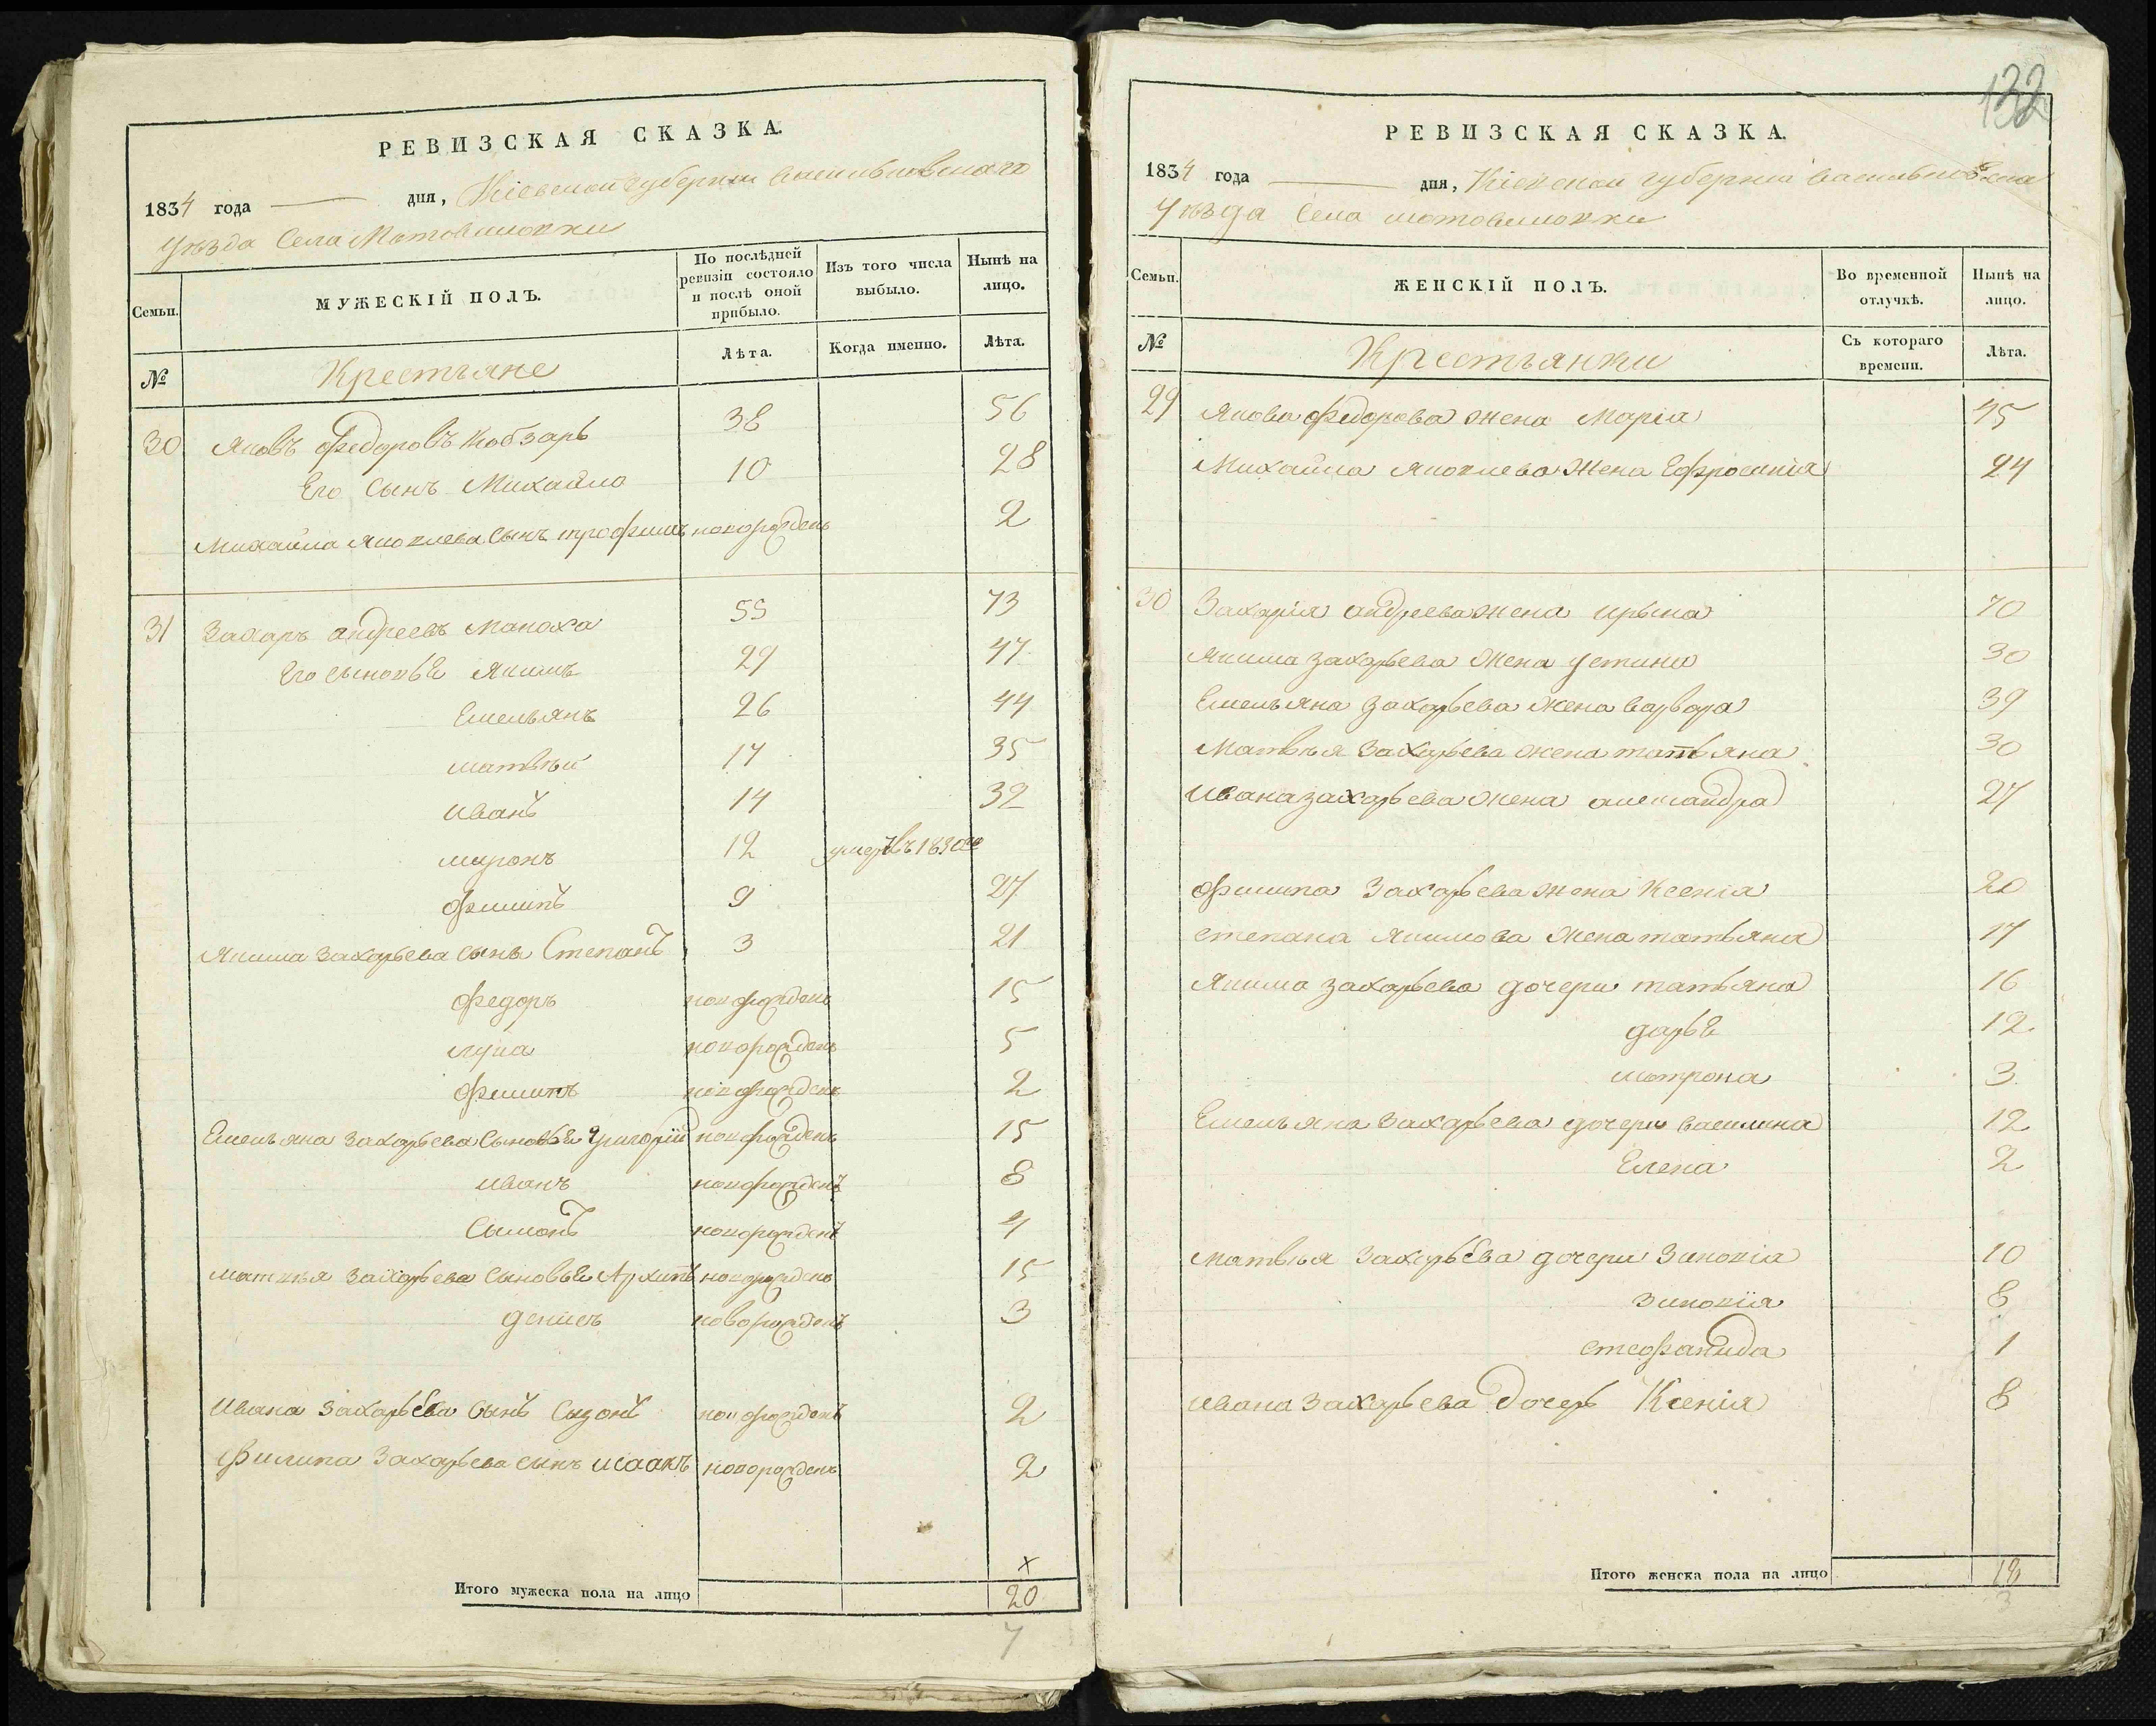 РЕВИЗСКАЯ СКАЗКА.
1834 года дня, Кіевской губерніи Васильковскаго
Уѣзда Села Мотовиловки
Семьи.
МУЖЕСКІЙ ПОЛЪ.
По послѣдней ревизіи состояло и послѣ оной прибыло.
Изъ того числа выбыло.
Нынѣ на лицо.
№
Крестьяне
Лѣта.
Когда именно.
Лѣта.
30 Яковъ Федоровъ Кобзарь 38 56
Его Сынъ Михайло 10 28
Михайла Яковлева Сынъ трофимъ новорожденъ 2
31 Захаръ андреевъ Маноха 55 73
Его сыновьЕ Якимъ 29 47
Емельянъ 26 44
матвѣй 17 35
иванъ 14 32
миронъ 12 умеръ въ 1830
филипъ 9 27
Якима Захарьева сынъ Степанъ 3 21
федоръ новорожденъ 15
лука новорожденъ 5
филипъ новорожденъ 2
Емельяна Захарьева СыновьЕ Григорій новорожденъ 15
иванъ новорожденъ 8
Сымонъ новорожденъ 4
матвѣя Захарьева СыновьЕ Архипъ новорожденъ 15
денисъ новорожденъ 3
Ивана Захарьева Сынъ Сызонъ новорожденъ 2
Филипа Захарьева сынъ исаакъ новорожденъ 2
х
Итого мужеска пола на лицо 20
7
132
РЕВИЗСКАЯ СКАЗКА.
1834 года дня, Кіевской губерніи
Уѣзда Села мотовиловки
Семьи.
ЖЕНСКІЙ ПОЛЪ.
Во временной отлучкѣ.
Нынѣ на лицо.
№
Крестьянки
Съ котораго времени.
Лѣта.
29 Якова федорова жена Маріа 45
Михайла Яковлева Жена Ефросинія 24
30 Захарія андреева жена ирына 70
Якима Захарьева Жена устина 30
Емельяна Захарьева Жена варвара 39
Матвѣя Захарьева жена татьяна 30
Ивана захарьева Жена александра 27
Филипа Захарьева Жена Ксенія 20
степана Якимова Жена татьяна 17
Якима захарьева дочери татьяна 16
дарьЕ 12
мотрона 3
Емельяна Захарьева дочери василина 12
Елена 2
Матвѣя Захарьева дочери Зиновіа 10
зиновія 8
стефанида 1
ивана Захарьева Дочерь Ксенія 8
Итого женска пола на лицо 18
3